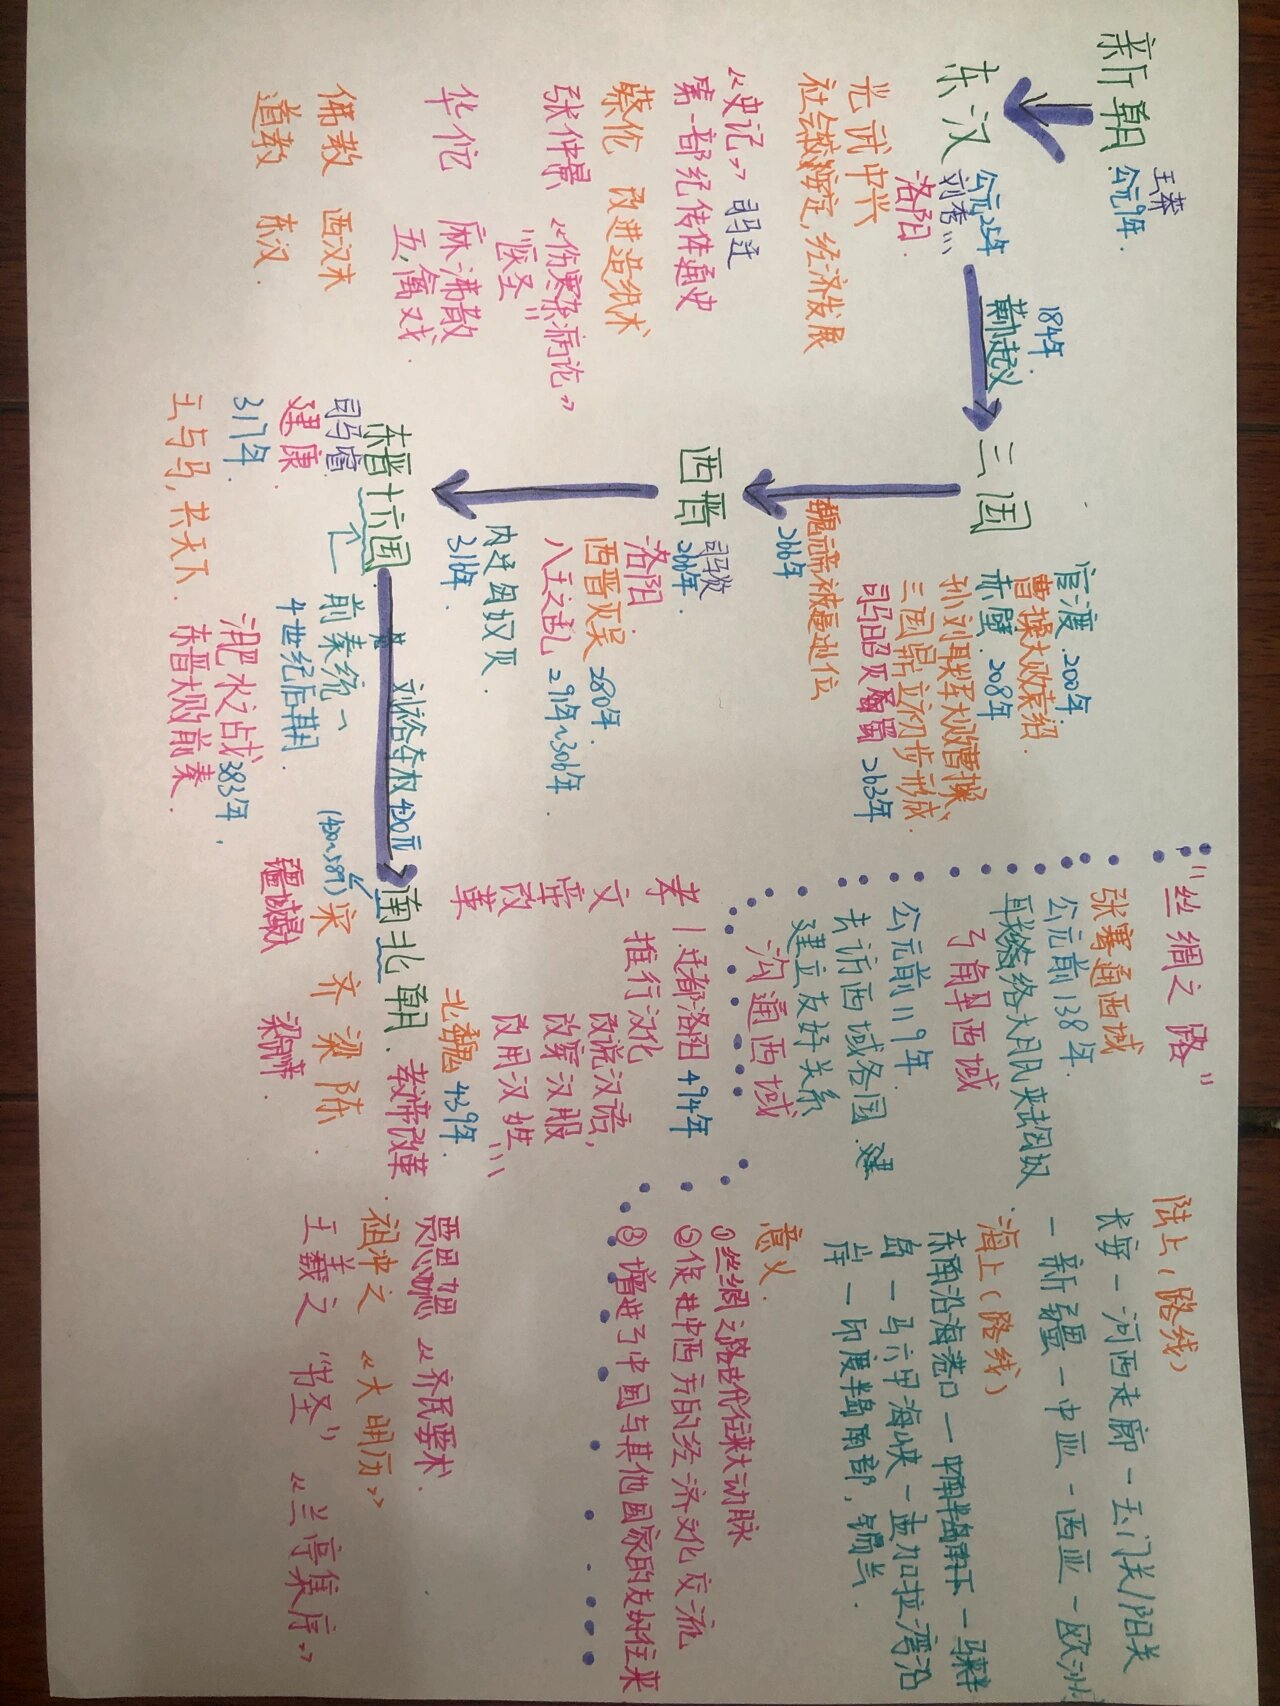 新朝
王莽
公元9年.
东汉
公元25年
刘秀
洛阳
光武中兴
社会较安定,经济发展
《史记》 司马迁
第一部纪传体通史
蔡伦 改进造纸术
张仲景 《伤寒杂病论》
"医圣"
华佗 麻沸散
五禽戏.
佛教 西汉末
道教 东汉
184年
黄巾起义
三国
官渡.200年
曹操大败袁绍.
赤壁.208年
孙刘联军大败曹操,
三国鼎立初步形成.
司马昭灭蜀 263年
魏元帝被逼退位
266年
西晋
司马炎
266年.
洛阳
西晋灭吴 280年.
八王之乱 291年~306年
内迁匈奴灭.
316年.
东晋十六国
司马睿
建康
317年
王与马,共天下.
前秦统一
4世纪后期.
淝水之战383年,
东晋大败前秦.
刘裕夺权420年
南北朝.
(420~589)宋 齐 梁 陈
疆域最大
梁武帝
北魏439年.
孝文帝改革
孝文帝改革
迁都洛阳494年
推行汉化
改说汉语,
改穿汉服
改用汉姓
贾思勰《齐民要术.
祖冲之 《大明历》
王羲之 "书圣" 《兰亭集序》
"丝绸之路"
张骞通西域
公元前138年.
联络大月氏夹击匈奴
了解西域
公元前119年.
去访西域各国.建
建立友好关系
沟通西域
陆上(路线)
长安—河西走廊—玉门关/阳关
—新疆—中亚—西亚—欧洲
海上(路线)
东南沿海港口—中南半岛南下—马来半
岛—马六甲海峡—孟加拉湾沿
岸—印度半岛南部,锡兰.
意义.
①丝绸之路世代往来大动脉
②促进中西方的经济文化交流
③增进了中国与其他国家的友好往来